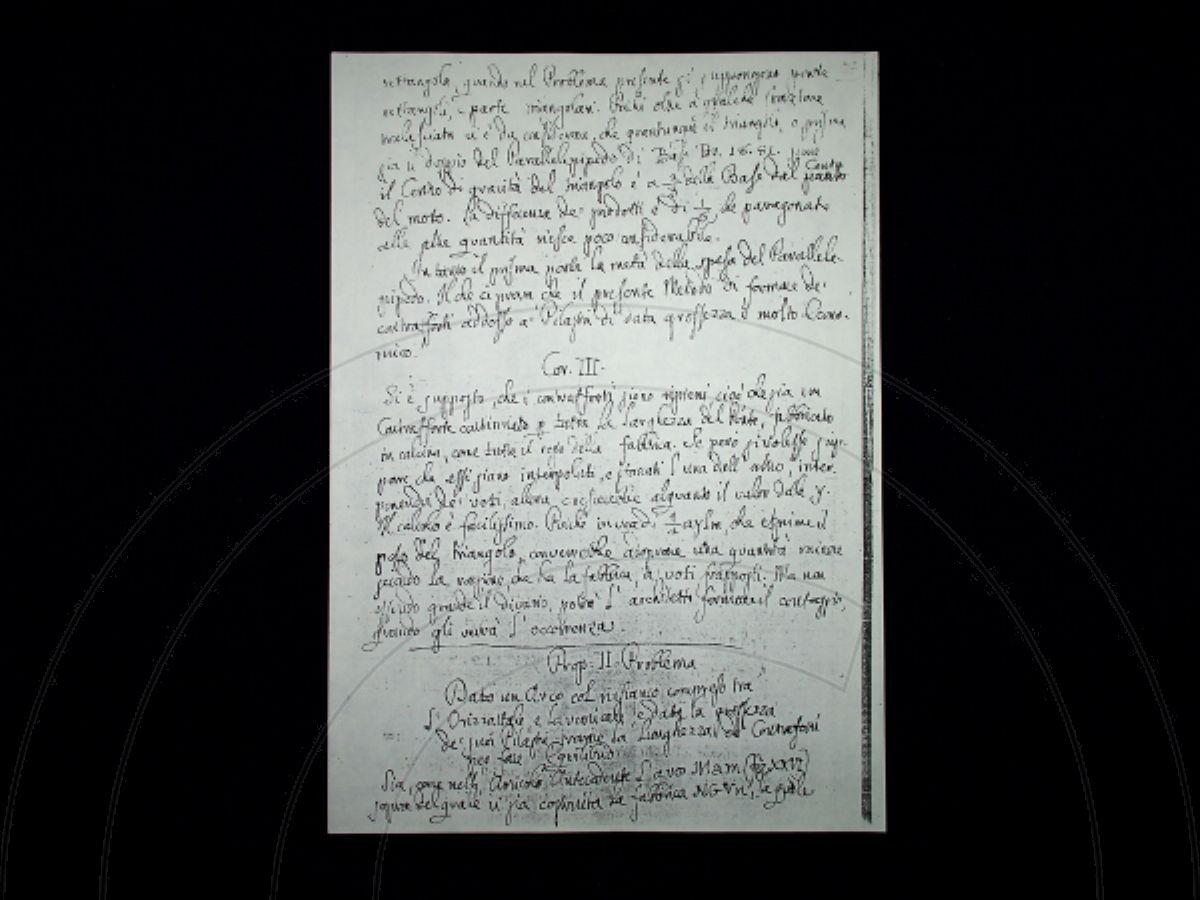 rettangola, quando nel Problema presente si suppongono parte
rettangoli, e parte triangolari. Perchè oltre a qualche frazione
tralasciata si è da considerare, che quantunque il triangoli, o prisma
sia il doppio del Parallelepipedo di Base Br. 18. 81. pure
il Centro di gravità del triangolo è a 2/3 della Base dal Centro
del moto. La differenza de' prodotti è di che paragonata
alle altre quantità riesce poco considerabile.
In tanto il prisma porta la metà della spesa del Parallele-
pipedo. Il che ci prova che il presente Metodo di formare de'
contrafforti addosso a' Pilastri di data grossezza è molto Econo-
mico.
Cor. III.
Si è supposto, che i contrafforti siano ripieni cioè che sia un
Contrafforte continuato p tutta la larghezza del fabbricato
in calcina, come tutto il resto della fabbrica. Se però si volesse sup-
porre che essi siano interpolati, e staccati l'uno dell'altro, inter
ponendosi dei voti, allora crescerebbe alquanto il valor della y.
Il calcolo è facilissimo. Perchè in vece di che esprime il
peso del triangolo, converrebbe adoprare una quantità minore
secondo la ragione, che ha la fabbrica, a' voti frapposti. Ma non
essendo grande il divario, potrà l'architetto formarne il conteggio,
quando gli verrà l'occorrenza.
Prop. II. Problema
Dato un Arco col rifianco compreso tra
l'Orizzontale e la verticale, e data la grossezza
de' suoi Pilastri trovare la Larghezza de' Contrafforti
per fare Equilibrio
Sia, come nell' Articolo Antecedente l'arco MAm (Fig XXVI)
sopra del quale vi sia costruita la fabbrica NGVn, la quale